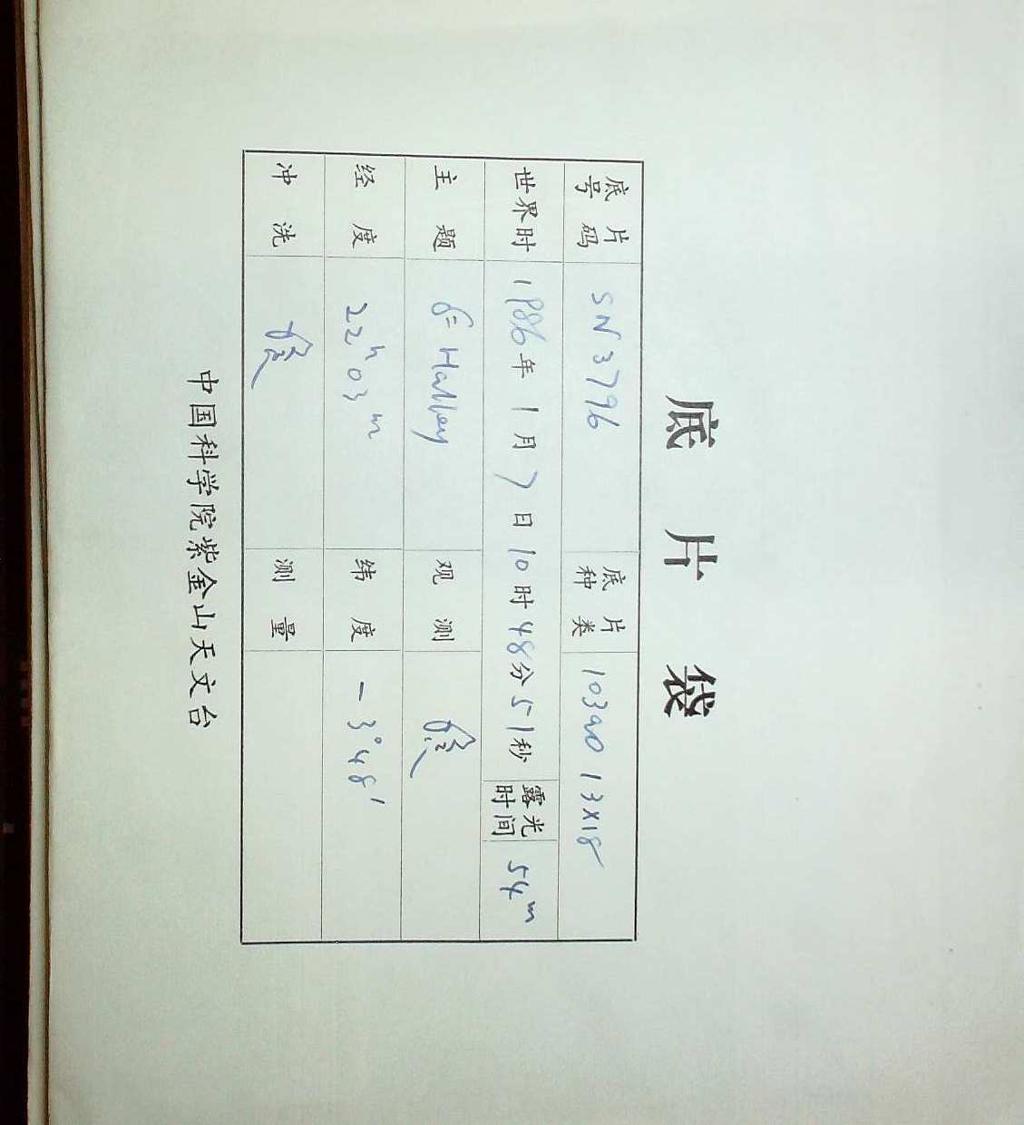 底片袋
底片号码 SN3796 底片种类 103a0 13X18
世界时 1986年1月7日10时48分51秒 露光时间 54m
主题 Halley 观测
经度 22h03m 纬度 -3°48'
冲洗 测量
中国科学院紫金山天文台